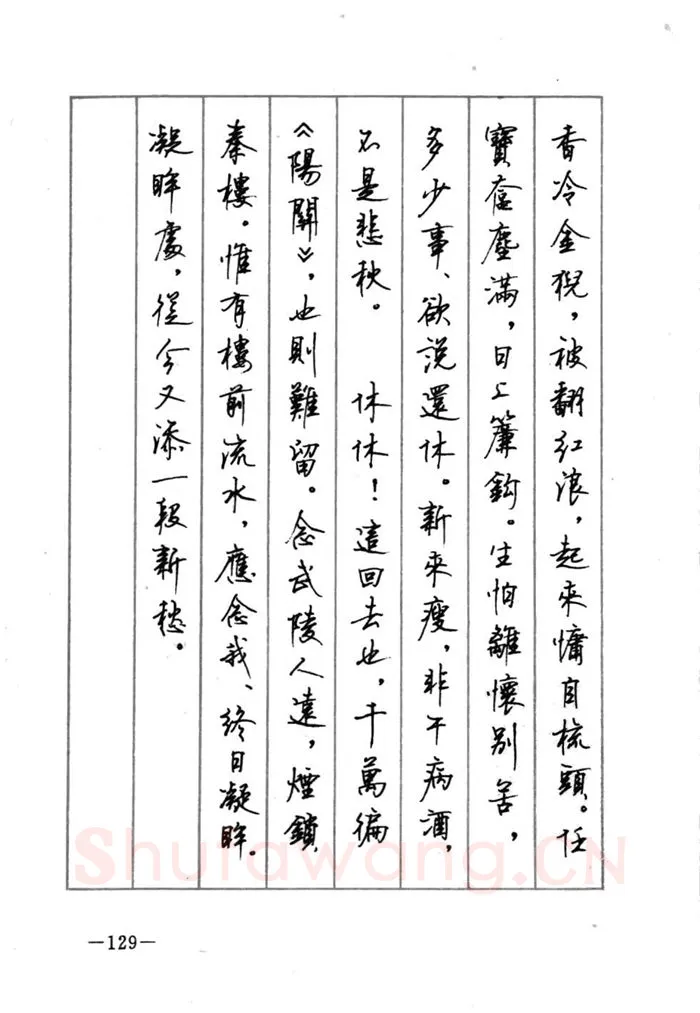 香冷金猊，被翻紅浪，起來慵自梳頭。任
寶奩塵滿，日上簾鈎。生怕離懷別苦，
多少事、欲說還休。新來瘦，非干病酒，
不是悲秋。　　休休！這回去也，千萬徧
《陽關》，也則難留。念武陵人遠，煙鎖
秦樓。惟有樓前流水，應念我、終日凝眸。
凝眸處，從今又添一段新愁。
Shufawang.CN
—129—